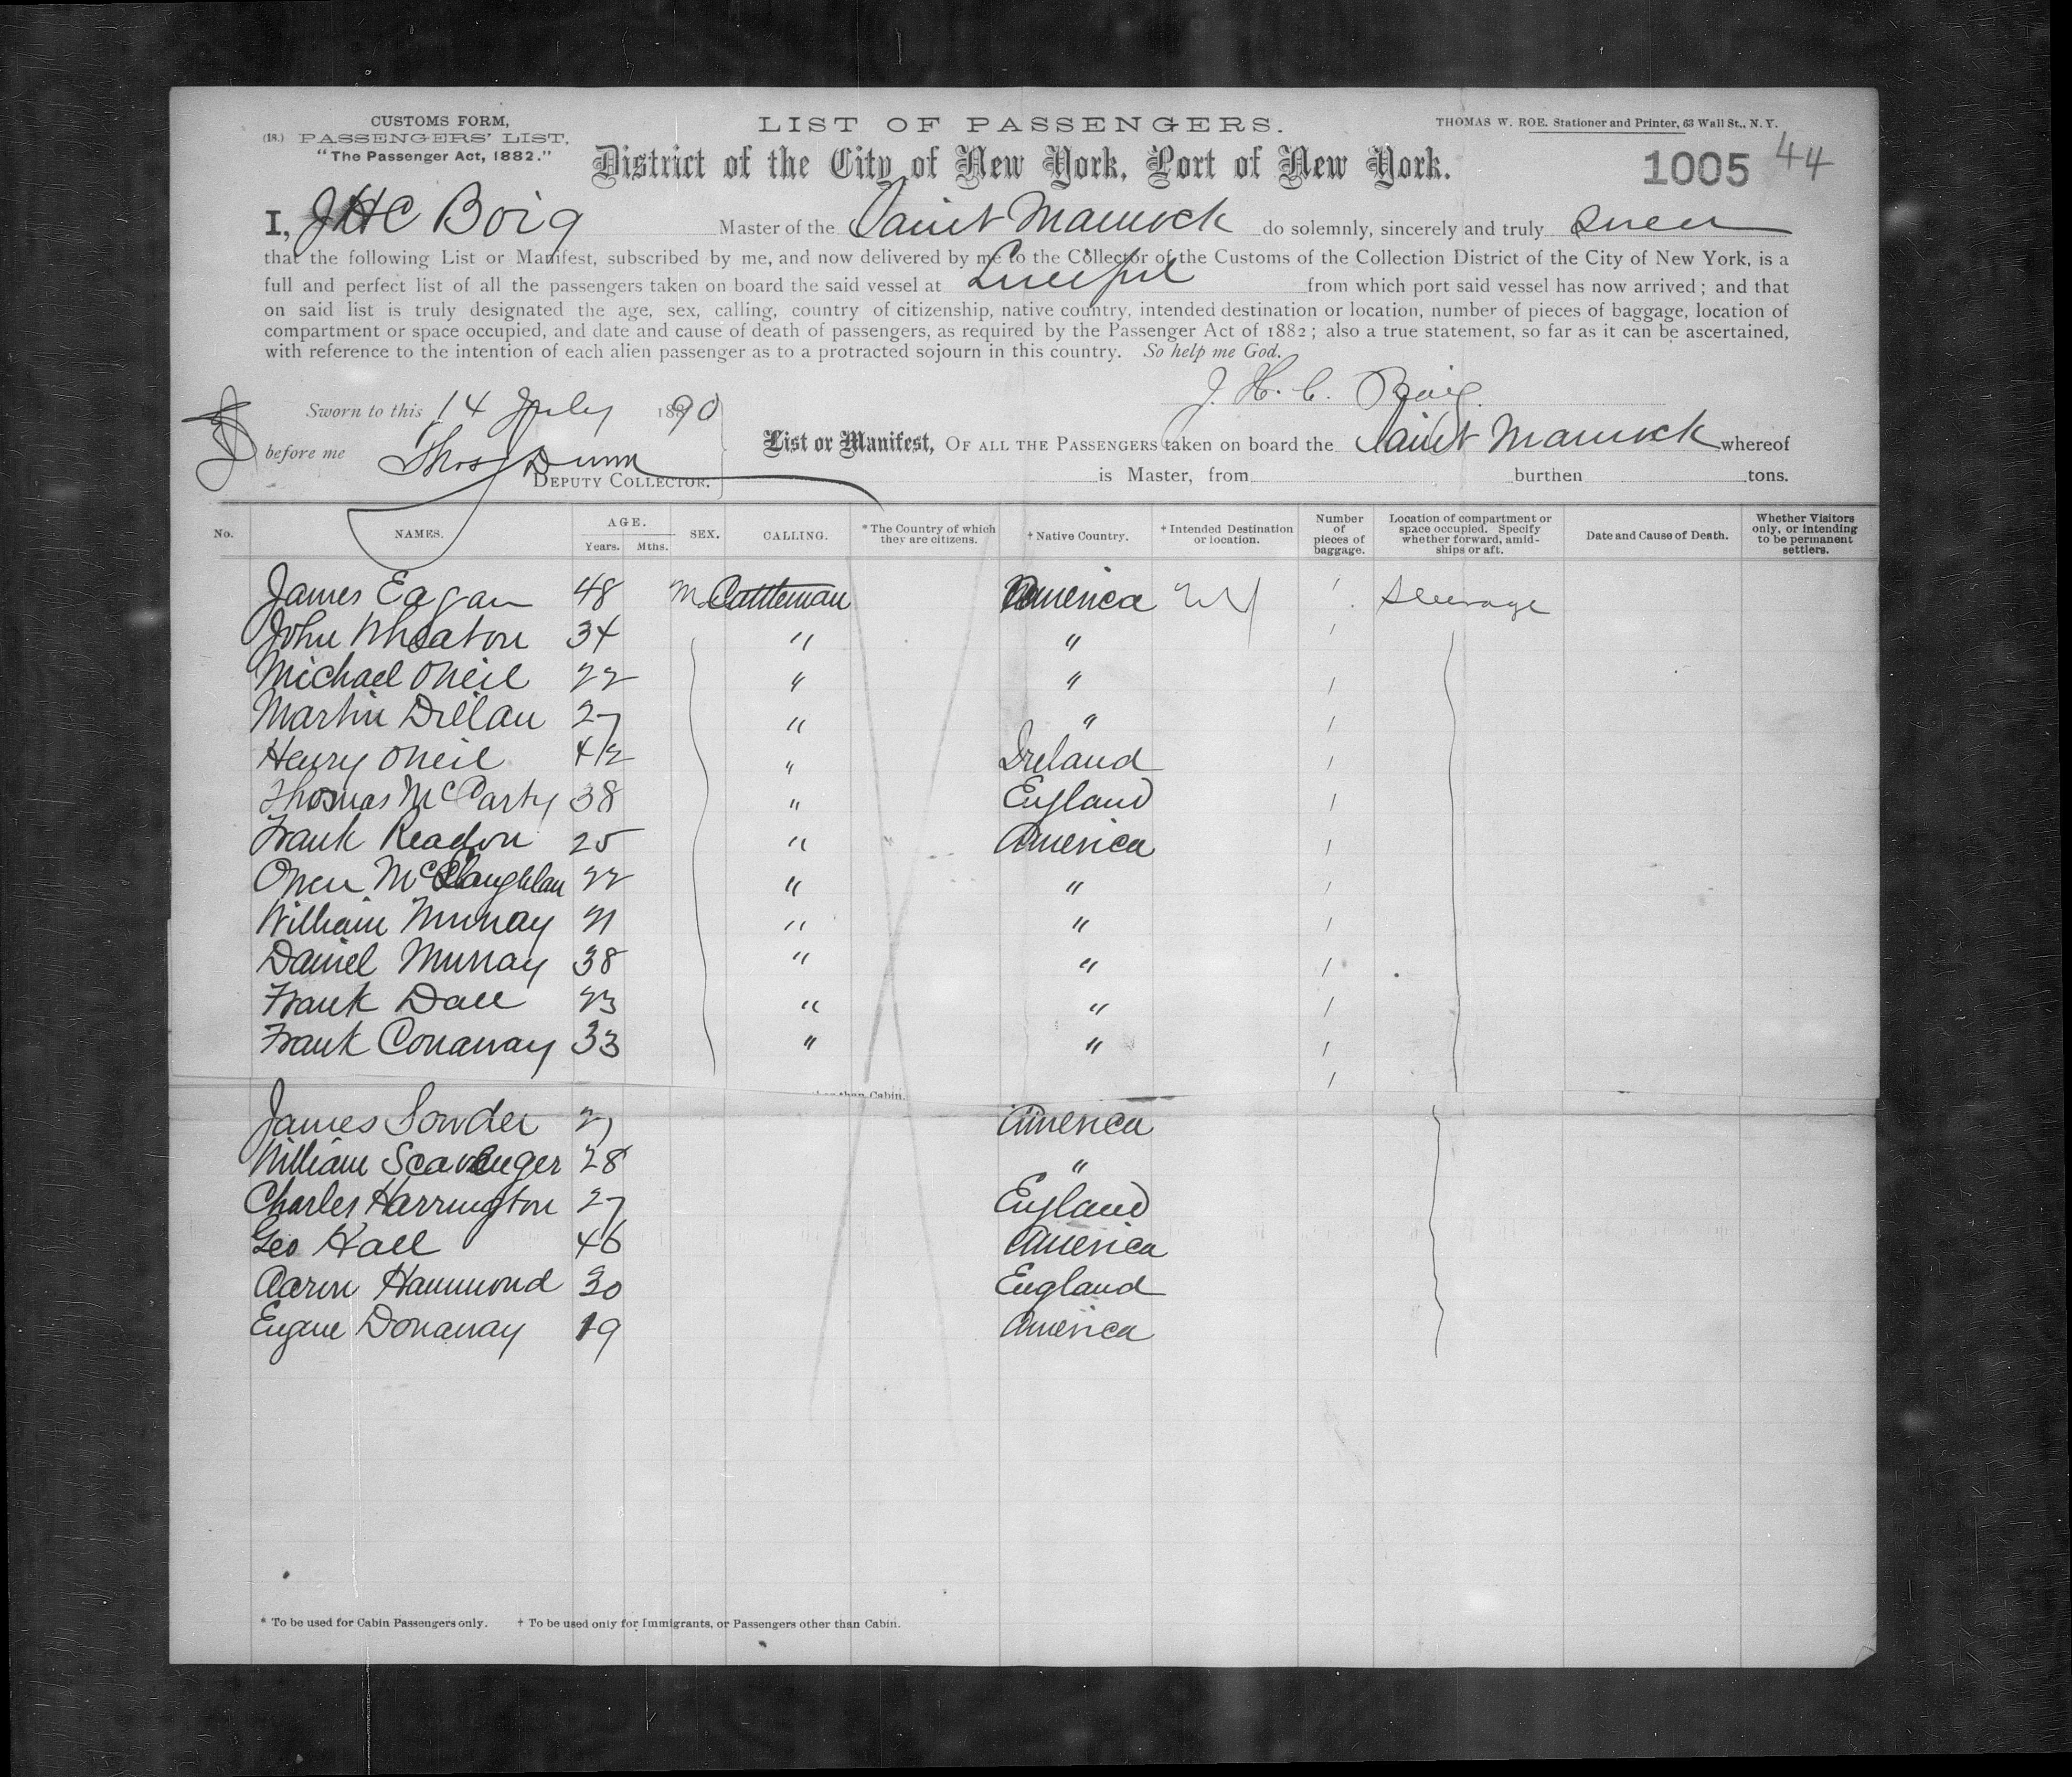 CUSTOMS FORM,
(18.) PASSENGERS' LIST,
"The Passenger Act, 1882."
LIST OF PASSENGERS.
THOMAS W. ROE. Stationer and Printer, 63 Wall St., N. Y.
District of the City of New York, Port of New York.
1005 44
I, J H C Boig Master of the Saint Marnock do solemnly, sincerely and truly swear
that the following List or Manifest, subscribed by me, and now delivered by me to the Collector of the Customs of the Collection District of the City of New York, is a
full and perfect list of all the passengers taken on board the said vessel at from which port said vessel has now arrived; and that
on said list is truly designated the age, sex, calling, country of citizenship, native country, intended destination or location, number of pieces of baggage, location of
compartment or space occupied, and date and cause of death of passengers, as required by the Passenger Act of 1882; also a true statement, so far as it can be ascertained,
with reference to the intention of each alien passenger as to a protracted sojourn in this country. So help me God.
J. H. C. Boig
Sworn to this 14 July 1890
before me Thos Dunn
DEPUTY COLLECTOR.
List or Manifest, OF ALL THE PASSENGERS taken on board the Saint Marnock whereof
is Master, from burthen tons.
No. NAMES. AGE. Years. Mths. SEX. CALLING. * The Country of which they are citizens. † Native Country. † Intended Destination or location. Number of pieces of baggage. Location of compartment or space occupied. Specify whether forward, amidships or aft. Date and Cause of Death. Whether Visitors only, or intending to be permanent settlers.
James Eagan 48 M Cattleman America NY 1 Steerage
John Wheaton 34 " " 1
Michael Oneil 22 " " 1
Martin Dillan 27 " " 1
Henry Oneil 42 " Ireland 1
Thomas McCarty 38 " England 1
Frank Readon 25 " America 1
Owen McClaughlan 22 " " 1
William Murray 21 " " 1
Daniel Murray 38 " " 1
Frank Dall 23 " " 1
Frank Conaway 33 " " 1
1
her than Cabin.
James Sowder America
William Scavenger 28 "
Charles Harrington 27 England
Geo Hall 46 America
Aaron Hammond 30 England
Eugene Donaway 19 America
* To be used for Cabin Passengers only. † To be used only for Immigrants, or Passengers other than Cabin.